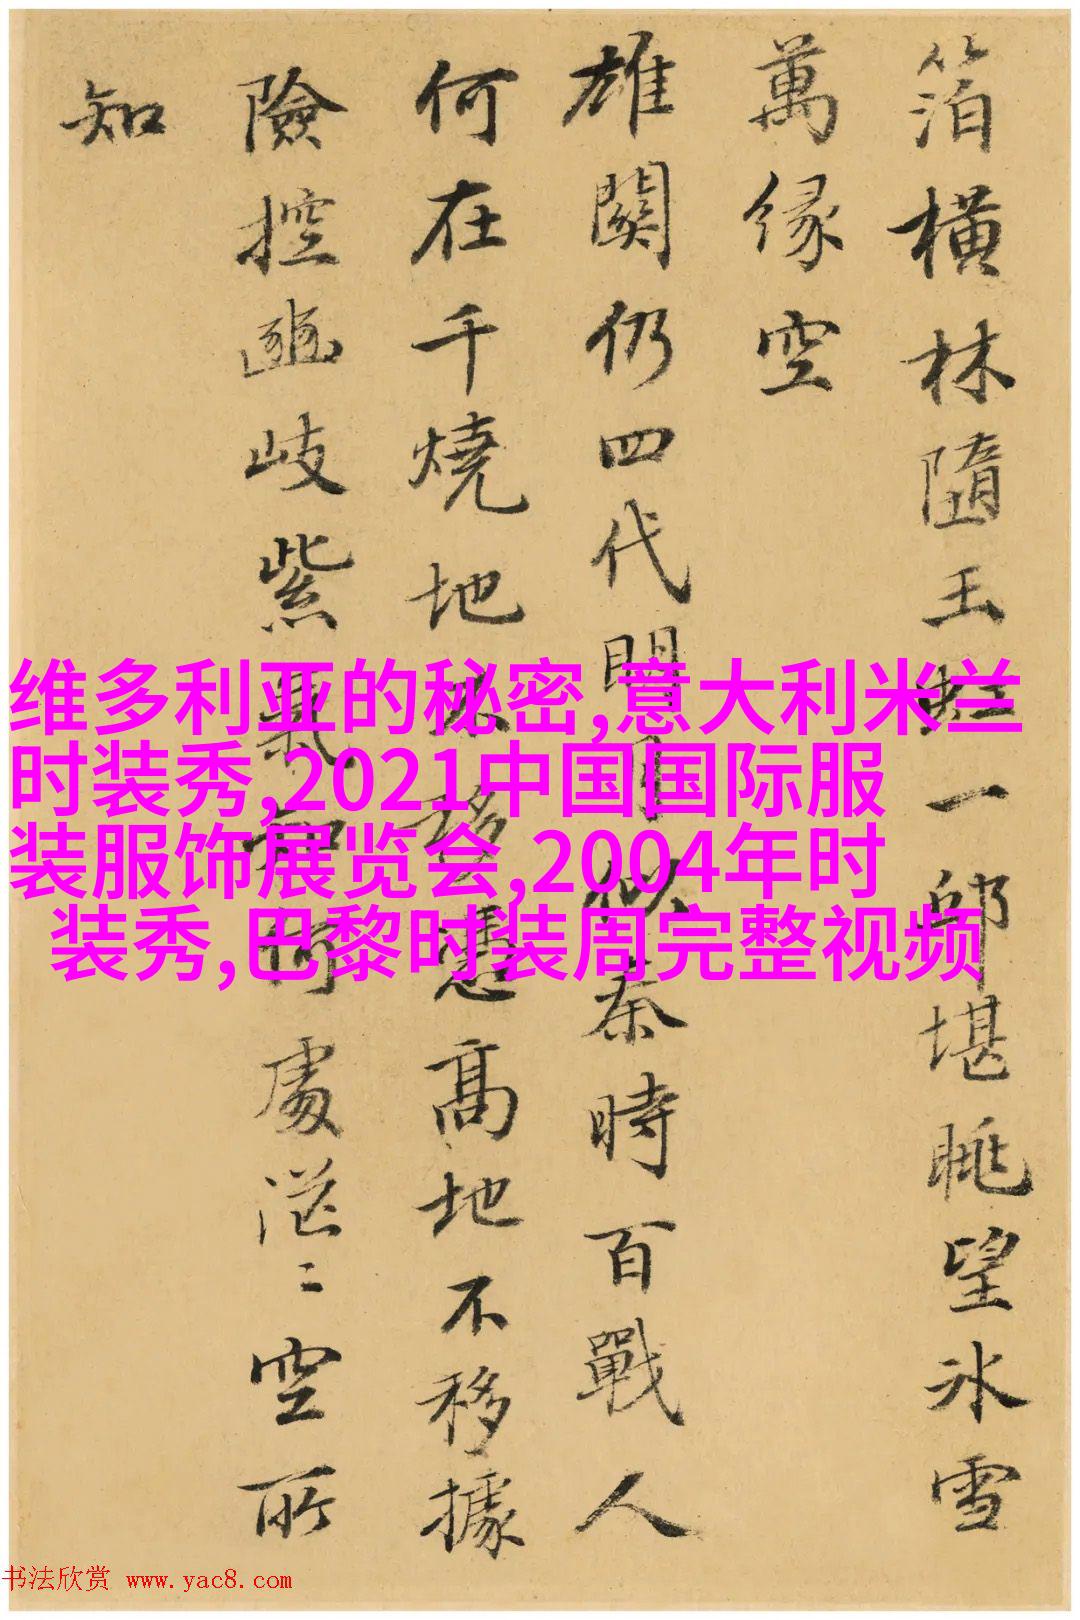 箔橫林隨玉虹一邱堪眺望冰雪
萬緣空
雄關仍四代月似秦時百戰人
何在千燒地移憑高地不移據
險控豳岐紫氣知何處茫〻空所
知
维多利亚的秘密,意大利米兰
时装秀,2021中国国际服
装服饰展览会,2004年时
装秀,巴黎时装周完整视频
书法欣赏 www.yac8.com